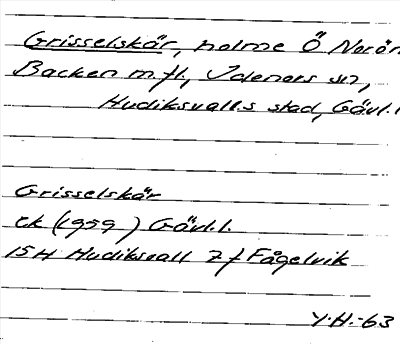 Grisselskär, holme Ö Norön
Backen m.fl., Idenors sn,
Hudiksvalls stad, Gävl.l
Grisselskär
ek (1959) Gävl.l.
15H Hudiksvall 7 f Fågelvik
Y.H.-63